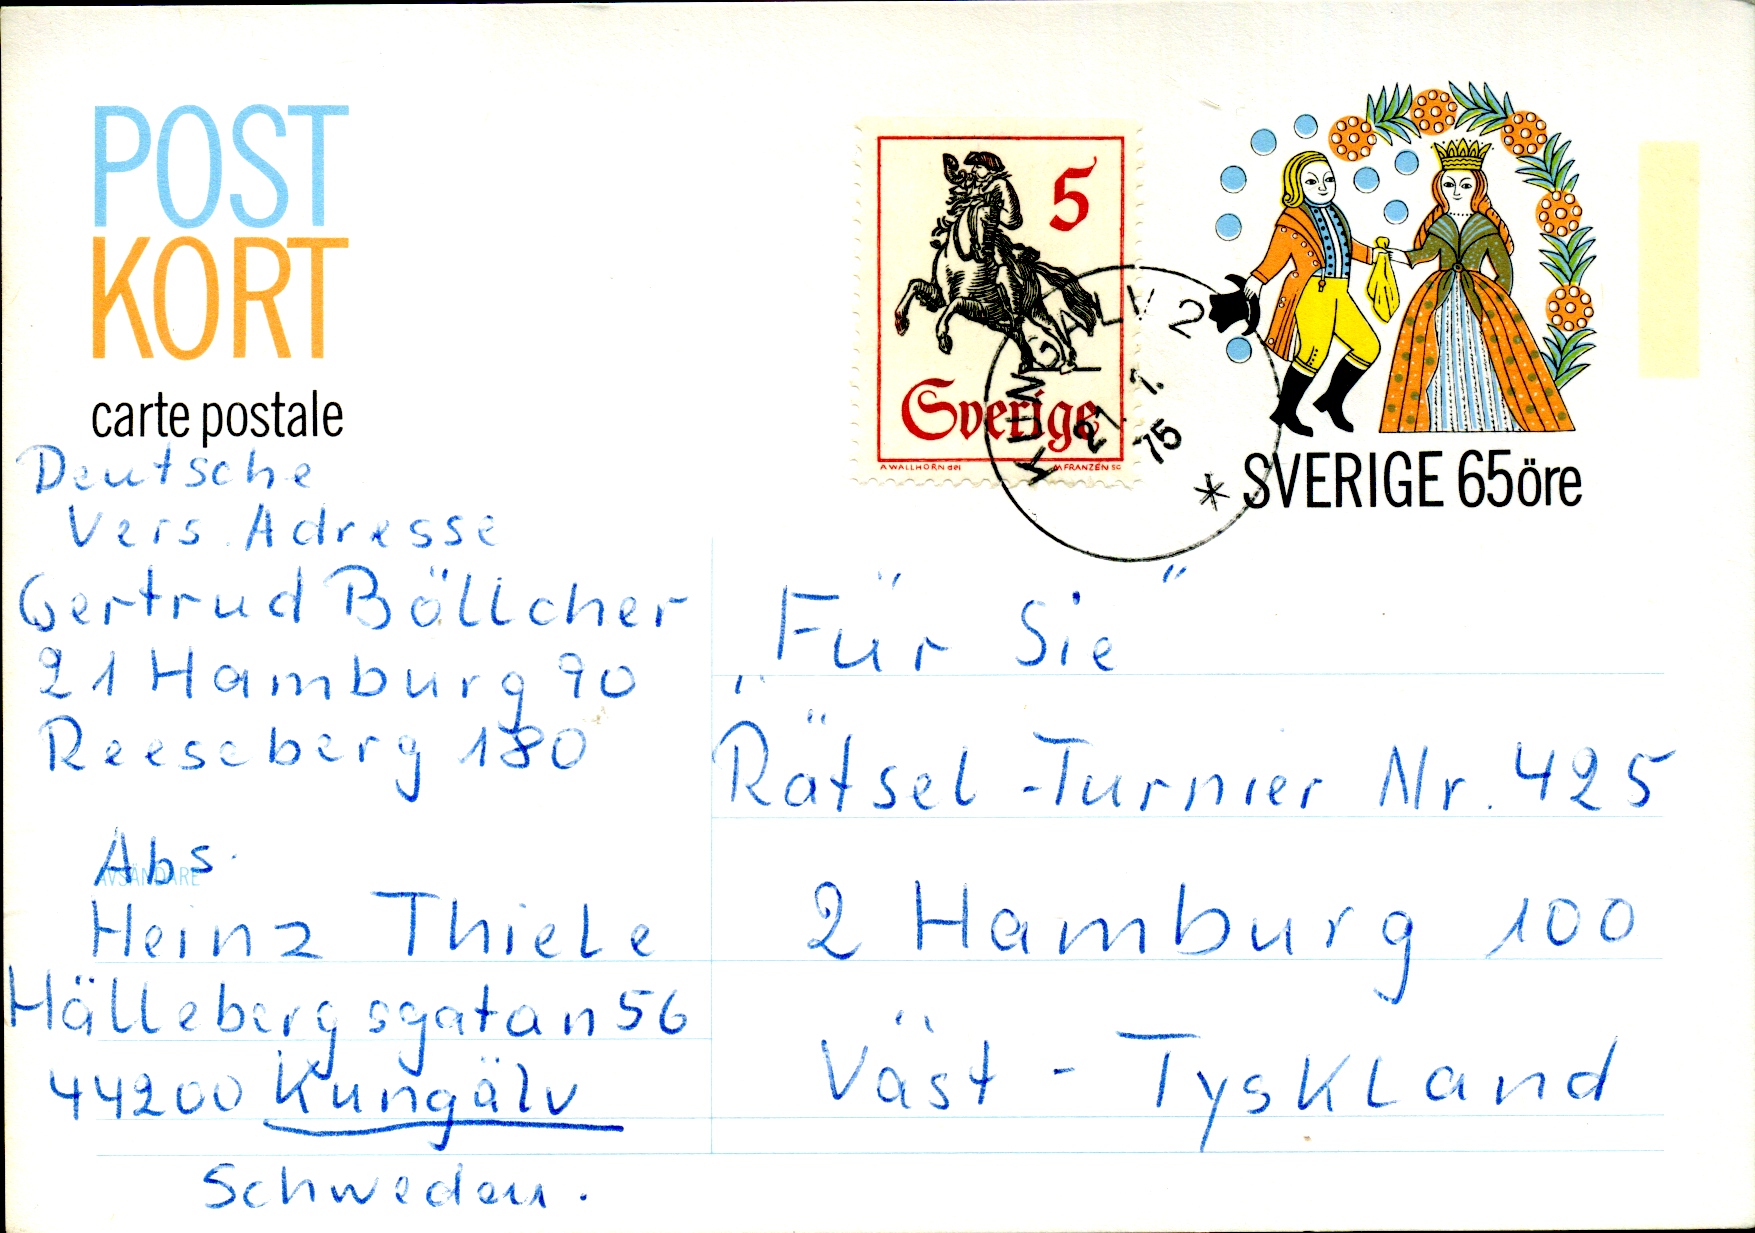 POST
KORT
carte postale
5
Sverige
A WALLHORN del
M FRANZÉN sc
KUNGÄLV 2
21. 7.
75
SVERIGE 65öre
Deutsche
Vers. Adresse
Gertrud Böllcher
21 Hamburg 90
Reeseberg 180
Abs.
AVSÄNDARE
Heinz Thiele
Hällebergsgatan 56
44200 Kungälv
Schweden.
"Für Sie"
Rätsel-Turnier Nr. 425
2 Hamburg 100
Väst - Tyskland